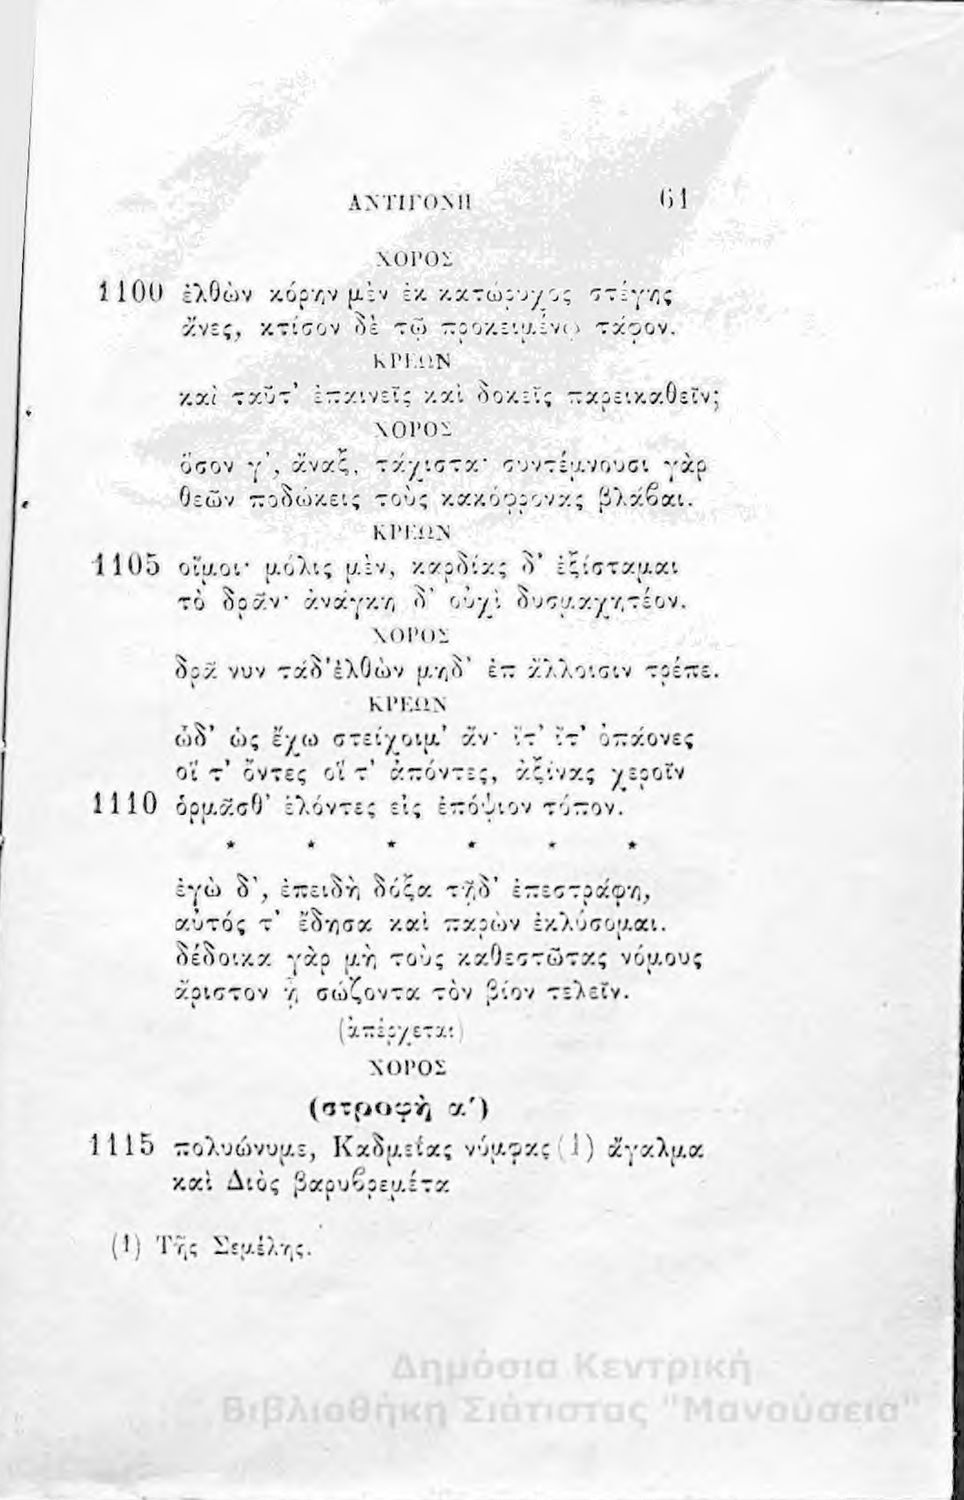 ΑΝΤΙΓΟΝΗ 61
ΧΟΡΟΣ
1100 ἐλθὼν κόρην μὲν ἐκ κατώρυχος στέγης
ἄνες, κτίσον δὲ τῷ προκειμένῳ τάφον.
ΚΡΕΩΝ
καὶ ταῦτ’ ἐπαινεῖς καὶ δοκεῖς παρεικαθεῖν;
ΧΟΡΟΣ
ὅσον γ’, ἄναξ, τάχιστα· συντέμνουσι γὰρ
θεῶν ποδώκεις τοὺς κακόφρονας βλάϐαι.
ΚΡΕΩΝ
1105 οἴμοι· μόλις μὲν, καρδίας δ’ ἐξίσταμαι
τὸ δρᾶν· ἀνάγκῃ δ’ οὐχὶ δυσμαχητέον.
ΧΟΡΟΣ
δρᾶ νυν τάδ’ἐλθὼν μηδ’ ἐπ ἄλλοισιν τρέπε.
ΚΡΕΩΝ
ὧδ’ ὡς ἔχω στείχοιμ’ ἄν· ἴτ’ ἴτ’ ὀπάονες
οἵ τ’ ὄντες οἵ τ’ ἀπόντες, ἀξίνας χεροῖν
1110 ὁρμᾶσθ’ ἑλόντες εἰς ἐπόψιον τόπον.
* * * * * *
ἐγὼ δ’, ἐπειδὴ δόξα τῇδ’ ἐπεστράφη,
αὐτός τ’ ἔδησα καὶ παρὼν ἐκλύσομαι.
δέδοικα γὰρ μὴ τοὺς καθεστῶτας νόμους
ἄριστον ᾖ σώζοντα τὸν βίον τελεῖν.
(ἀπέρχεται)
ΧΟΡΟΣ
(στροφὴ α΄)
1115 πολυώνυμε, Καδμείας νύμφας(1) ἄγαλμα
καὶ Διὸς βαρυϐρεμέτα
(1) Τῆς Σεμέλης.
Δημόσια Κεντρική
Βιβλιοθήκη Σιάτιστας "Μανούσεια"